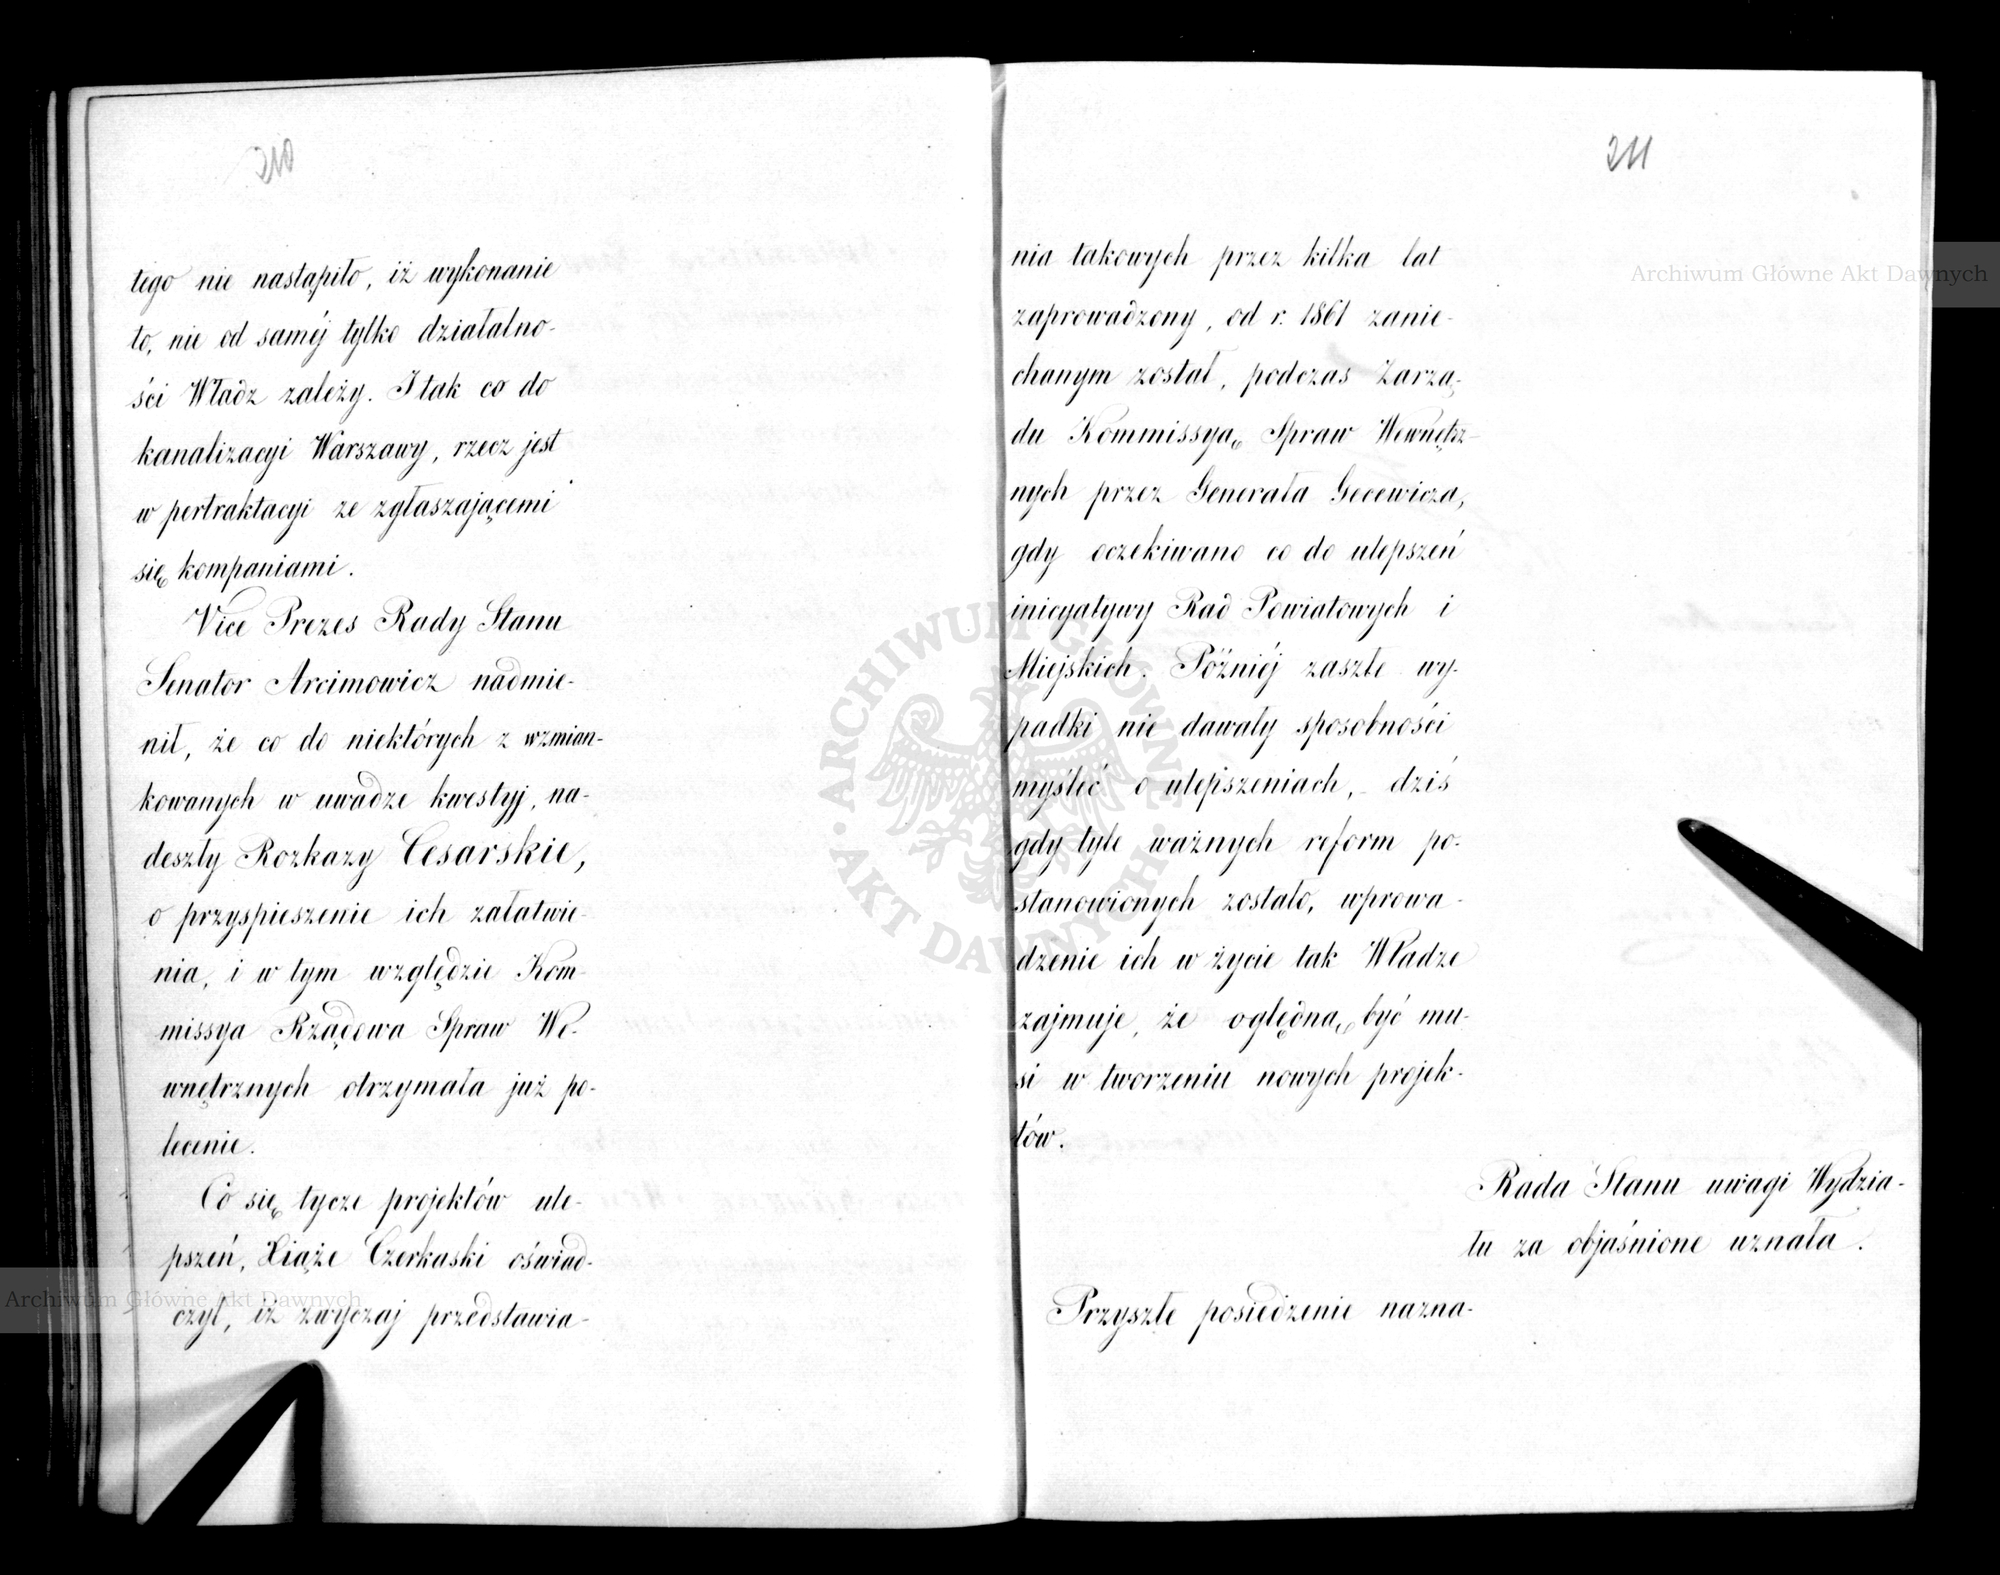 210
tego nie nastąpiło, iż wykonanie
to, nie od saméj tylko działalno-
ści Władz zależy. I tak co do
kanalizacyi Warszawy, rzecz jest
w pertraktacyi ze zgłaszającemi
się kompaniami.
Vice Prezes Rady Stanu
Senator Arcimowicz nadmie-
nił, że co do niektórych z wzmian-
kowanych w uwadze kwestyj, na-
deszły Rozkazy Cesarskie,
o przyspieszenie ich załatwie-
nia, i w tym względzie Kom-
missya Rządowa Spraw We-
wnętrznych otrzymała już po-
lecenie.
Co się tycze projektów ule-
pszeń, Xiąże Czerkaski oświad-
czył, iż zwyczaj przedstawia-
211
nia takowych przez kilka lat
zaprowadzony, od r. 1861 zanie-
chanym został, podczas Zarzą-
du Kommissyą Spraw Wewnętrz-
nych przez Generała Gecewicza,
gdy oczekiwano co do ulepszeń
inicyatywy Rad Powiatowych i
Miejskich. Późniéj zaszłe wy-
padki nie dawały sposobności
myśleć o ulepszeniach, - dziś
gdy tyle ważnych reform po-
stanowionych zostało, wprowa-
dzenie ich w życie tak Władze
zajmuje, że oględną być mu-
si w tworzeniu nowych projek-
tów.
Rada Stanu uwagi Wydzia-
łu za objaśnione uznała.
Przyszłe posiedzenie nazna-
Archiwum Główne Akt Dawnych
Archiwum Główne Akt Dawnych
ARCHIWUM GŁÓWNE AKT DAWNYCH